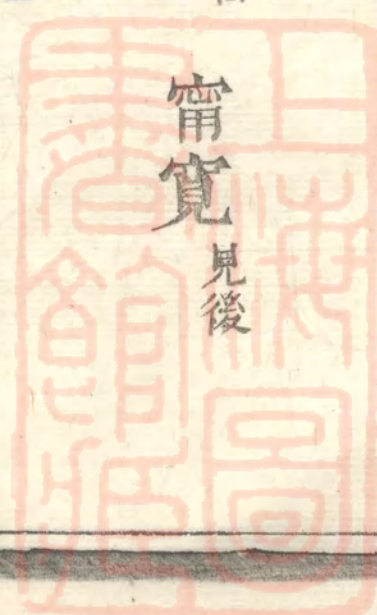 甯寬見後
上海圖
書館藏